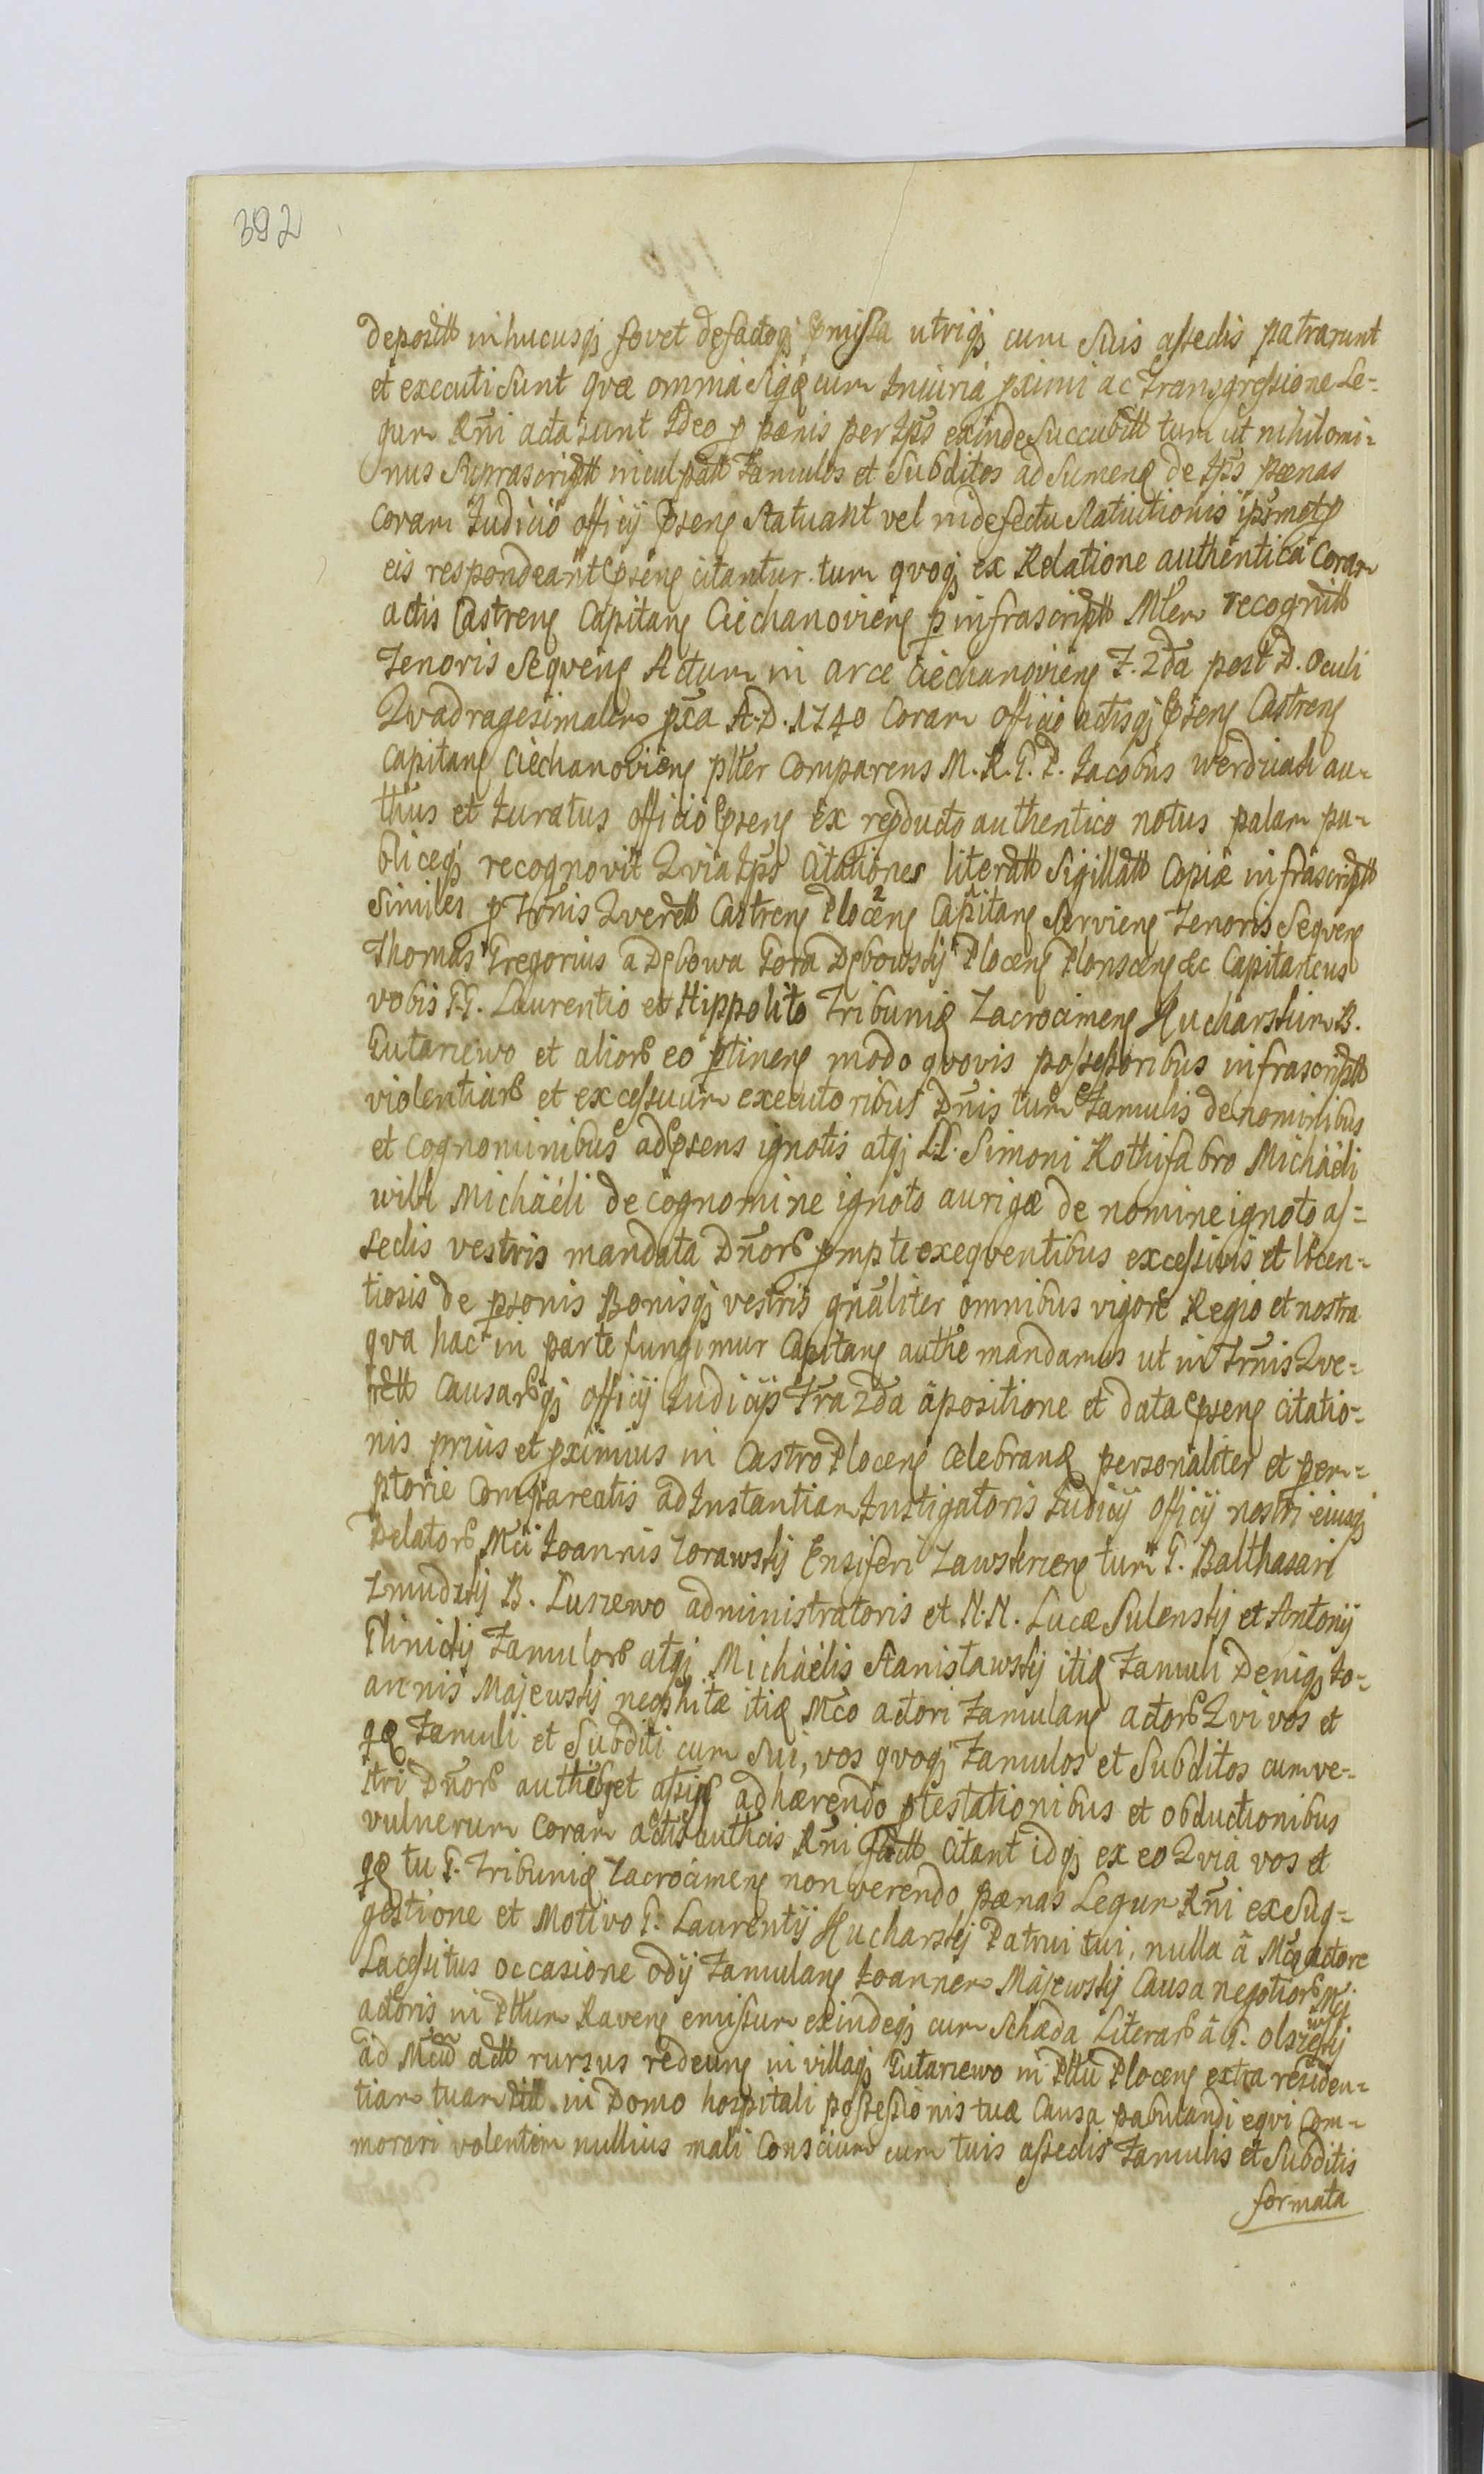 392
deposit in hucusq fovet defactoq pmissa utriq cum suis assedis patrarunt
et executi sunt qvæ omnia siqd cum Iniuria pximi ac Transgressione Le=
gum Rñi acta sunt Ideo p pænis per Ips exinde Succubit tum ut nihilomi=
nus Suprascript inculpat Famulos et Subditos ad Sumend de Ips pænas
coram Iudicio officij Psens Statuant vel in defectu Statutionis ipsimet p
eis respondeant Psens citantur. tum qvoq ex Relatione authentica Coram
actis Castren Capitan Ciechanovien p infrascript Mtem recognit
Tenoris Seqven Actum in arce Ciechanovien F. 2da post D. Oculi
Qvadragesimalem pxa A. D. 1740 Coram officio actisq Psen Castren
Capitan Ciechanovien plter Comparens M. R. G. P. Iacobus werduiali au=
thus et Iuratus officio Psen ex reproducto authentico notus palam pu=
bliceq recognovit Qvia Ips Citationes literat Sigillat Copiæ infrascript
Similes p Trnis Qverel Castren Plocen Capitan Servien Tenoris Seqven
Thomas Gregorius a Dębowa Gora Dębowskij Plocen Plonscen &c. Capitaneus
vobis GG. Laurentio et Hippolito Tribunid Zacrocimen Kucharskim B.
Gutarzewo et alior eo ptinen modo qvovis possessoribus infrascript
violentiar et excessuum executoribus Dñis tum et Famulis de nominibus
et Cognominibus ad Psens ignotis atq LL. Simoni Rothifabro Michäeli
wilk Michäeli de cognomine ignoto aurigæ de nomine ignoto as=
sedis vestris mandata Dñor prmpte exeqventibus excessivis et licen=
tiosis de psonis Bonisq vestris gñaliter omnibus vigore Regio et nostra
qva hac in parte fungimur Capitan authe mandamus ut in Trmis Qve=
rel Causarq officij Iudicijs Fra 2da a positione et data Psen citatio=
nis prius et pximius in Castro Plocen celebrand personaliter et perem=
ptorie Compareatis ad Instantiam Instigatoris Iudicij officij nostri eiusq
Delator Mci Ioannis Zorawskij Ensiferi Zawskrzen tum G. Balthasari
Zmudzkij B. Luszewo administratoris et N. N. Lucæ Sulenskij et Antonij
Glinickij Famulor atq Michäelis Stanisławskij itid Famuli Deniq Io=
annis Majewskij neophitæ itid Mco actori Famulan actor Qvi vos et
qd Famuli et Subditi cum Sui, vos qvoq Famulos et Subditos cum ve=
stri Dñor authib et assis adhærendo ptestationibus et obductionibus
vulnerum Coram actis authcis Rñi fact citant idq ex eo Qvia vos et
qd tu G. Tribunid Zacrocimen non verendo pænas Legum Rñi ex Sug=
gestione et Motivo G. Laurentij Kucharskij Patrui tui, nulla a Mco actore
Lacessitus occasione odij Famulan Ioannem Majewskij Causa negotior Mci
actoris in Pttum Raven emissum exindeq cum Schæda Literar a G. Olszewskij
ad Mcũ act rursus redeun in villaq Gutarzewo in Pttu Plocen extra residen=
tiam tuam in Domo hospitali possessionis tuæ Causa pabulandi eqvi Com=
morari volentem nullius mali Conscium cum tuis assedis Famulis et Subditis
formata